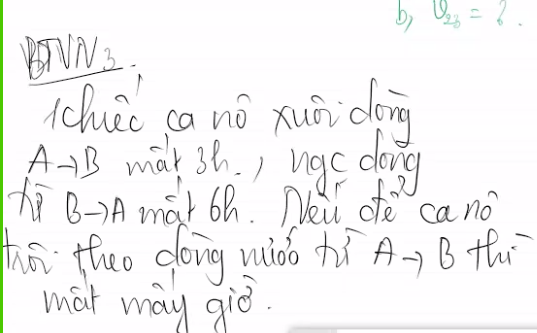 b, v₂₃ = ?.
BTVN 3.
1 chiếc ca nô xuôi dòng
A→B mất 3h., ngc dòng
từ B→A mất 6h. Nếu để ca nô
trôi theo dòng nước từ A→B thì
mất mấy giờ.